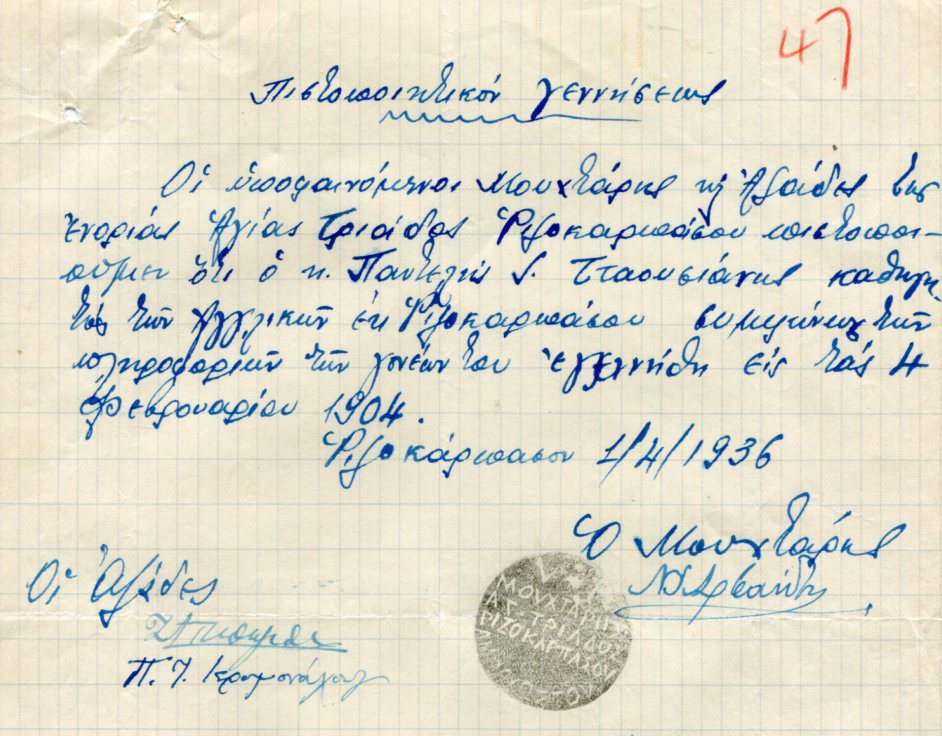 47
Πιστοποιητικόν γεννήσεως
Οἱ ὑποφαινόμενοι Μουχτάρης κ̀ Ἀζάδες τῆς
ἐνορίας Ἁγίας Τριάδος Ῥιζοκαρπάσου πιστοποι-
οῦμεν ὅτι ὁ κ. Παντελής Ι. Τταουσιάνης καθηγη-
τής τῶν Ἀγγλικῶν ἐκ Ῥιζοκαρπάσου συμφώνως τῶν
πληροφοριῶν τῶν γονέων του ἐγεννήθη εἰς τάς 4
Φεβρουαρίου 1904.
Ῥιζοκάρπασον 1/4/1936
Ὁ Μουχτάρης
Οἱ Ἀζάδες
Π. Ι.
ΜΟΥΧΤΑΡΗΣ
ΑΓ. ΤΡΙΑΔΟΣ
ΡΙΖΟΚΑΡΠΑΣΟΥ